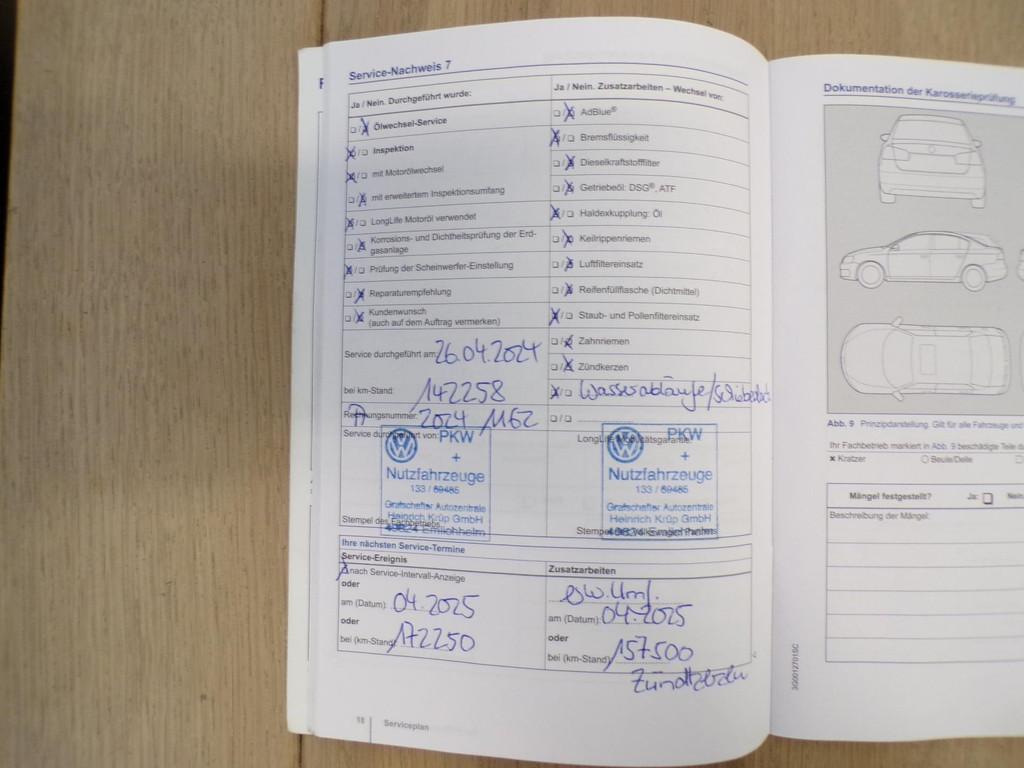 Service-Nachweis 7
Ja / Nein. Durchgeführt wurde:
Ölwechsel-Service
Inspektion
mit Motorölwechsel
mit erweitertem Inspektionsumfang
LongLife Motoröl verwendet
Korrosions- und Dichtheitsprüfung der Erd-
gasanlage
Prüfung der Scheinwerfer-Einstellung
Reparaturempfehlung
Kundenwunsch
(auch auf dem Auftrag vermerken)
Service durchgeführt am: 26.04.2024
bei km-Stand: 142258
Rechnungsnummer: 2024 / 1162
Service durchgeführt von:
PKW
+
Nutzfahrzeuge
133 / 69485
Grafschafter Autozentrale
Heinrich Krüp GmbH
49824 Emlichheim
Stempel des Fachbetriebs
Ja / Nein. Zusatzarbeiten – Wechsel von:
AdBlue®
Bremsflüssigkeit
Dieselkraftstofffilter
Getriebeöl: DSG®, ATF
Haldexkupplung: Öl
Keilrippenriemen
Luftfiltereinsatz
Reifenfüllflasche (Dichtmittel)
Staub- und Pollenfiltereinsatz
Zahnriemen
Zündkerzen
Wasserabläufe/Schiebedach
LongLife Mobilitätsgarantie
PKW
+
Nutzfahrzeuge
133 / 69485
Grafschafter Autozentrale
Heinrich Krüp GmbH
49824 Emlichheim
Ihre nächsten Service-Termine
Service-Ereignis
nach Service-Intervall-Anzeige
oder
am (Datum): 04.2025
oder
bei (km-Stand): 172250
Zusatzarbeiten
am (Datum): 04.2025
oder
bei (km-Stand): 157500
18 Serviceplan
Dokumentation der Karosserieprüfung
Abb. 9 Prinzipdarstellung. Gilt für alle Fahrzeuge und
Ihr Fachbetrieb markiert in Abb. 9 beschädigte Teile
x Kratzer Beule/Delle
Mängel festgestellt? Ja: Nein
Beschreibung der Mängel: